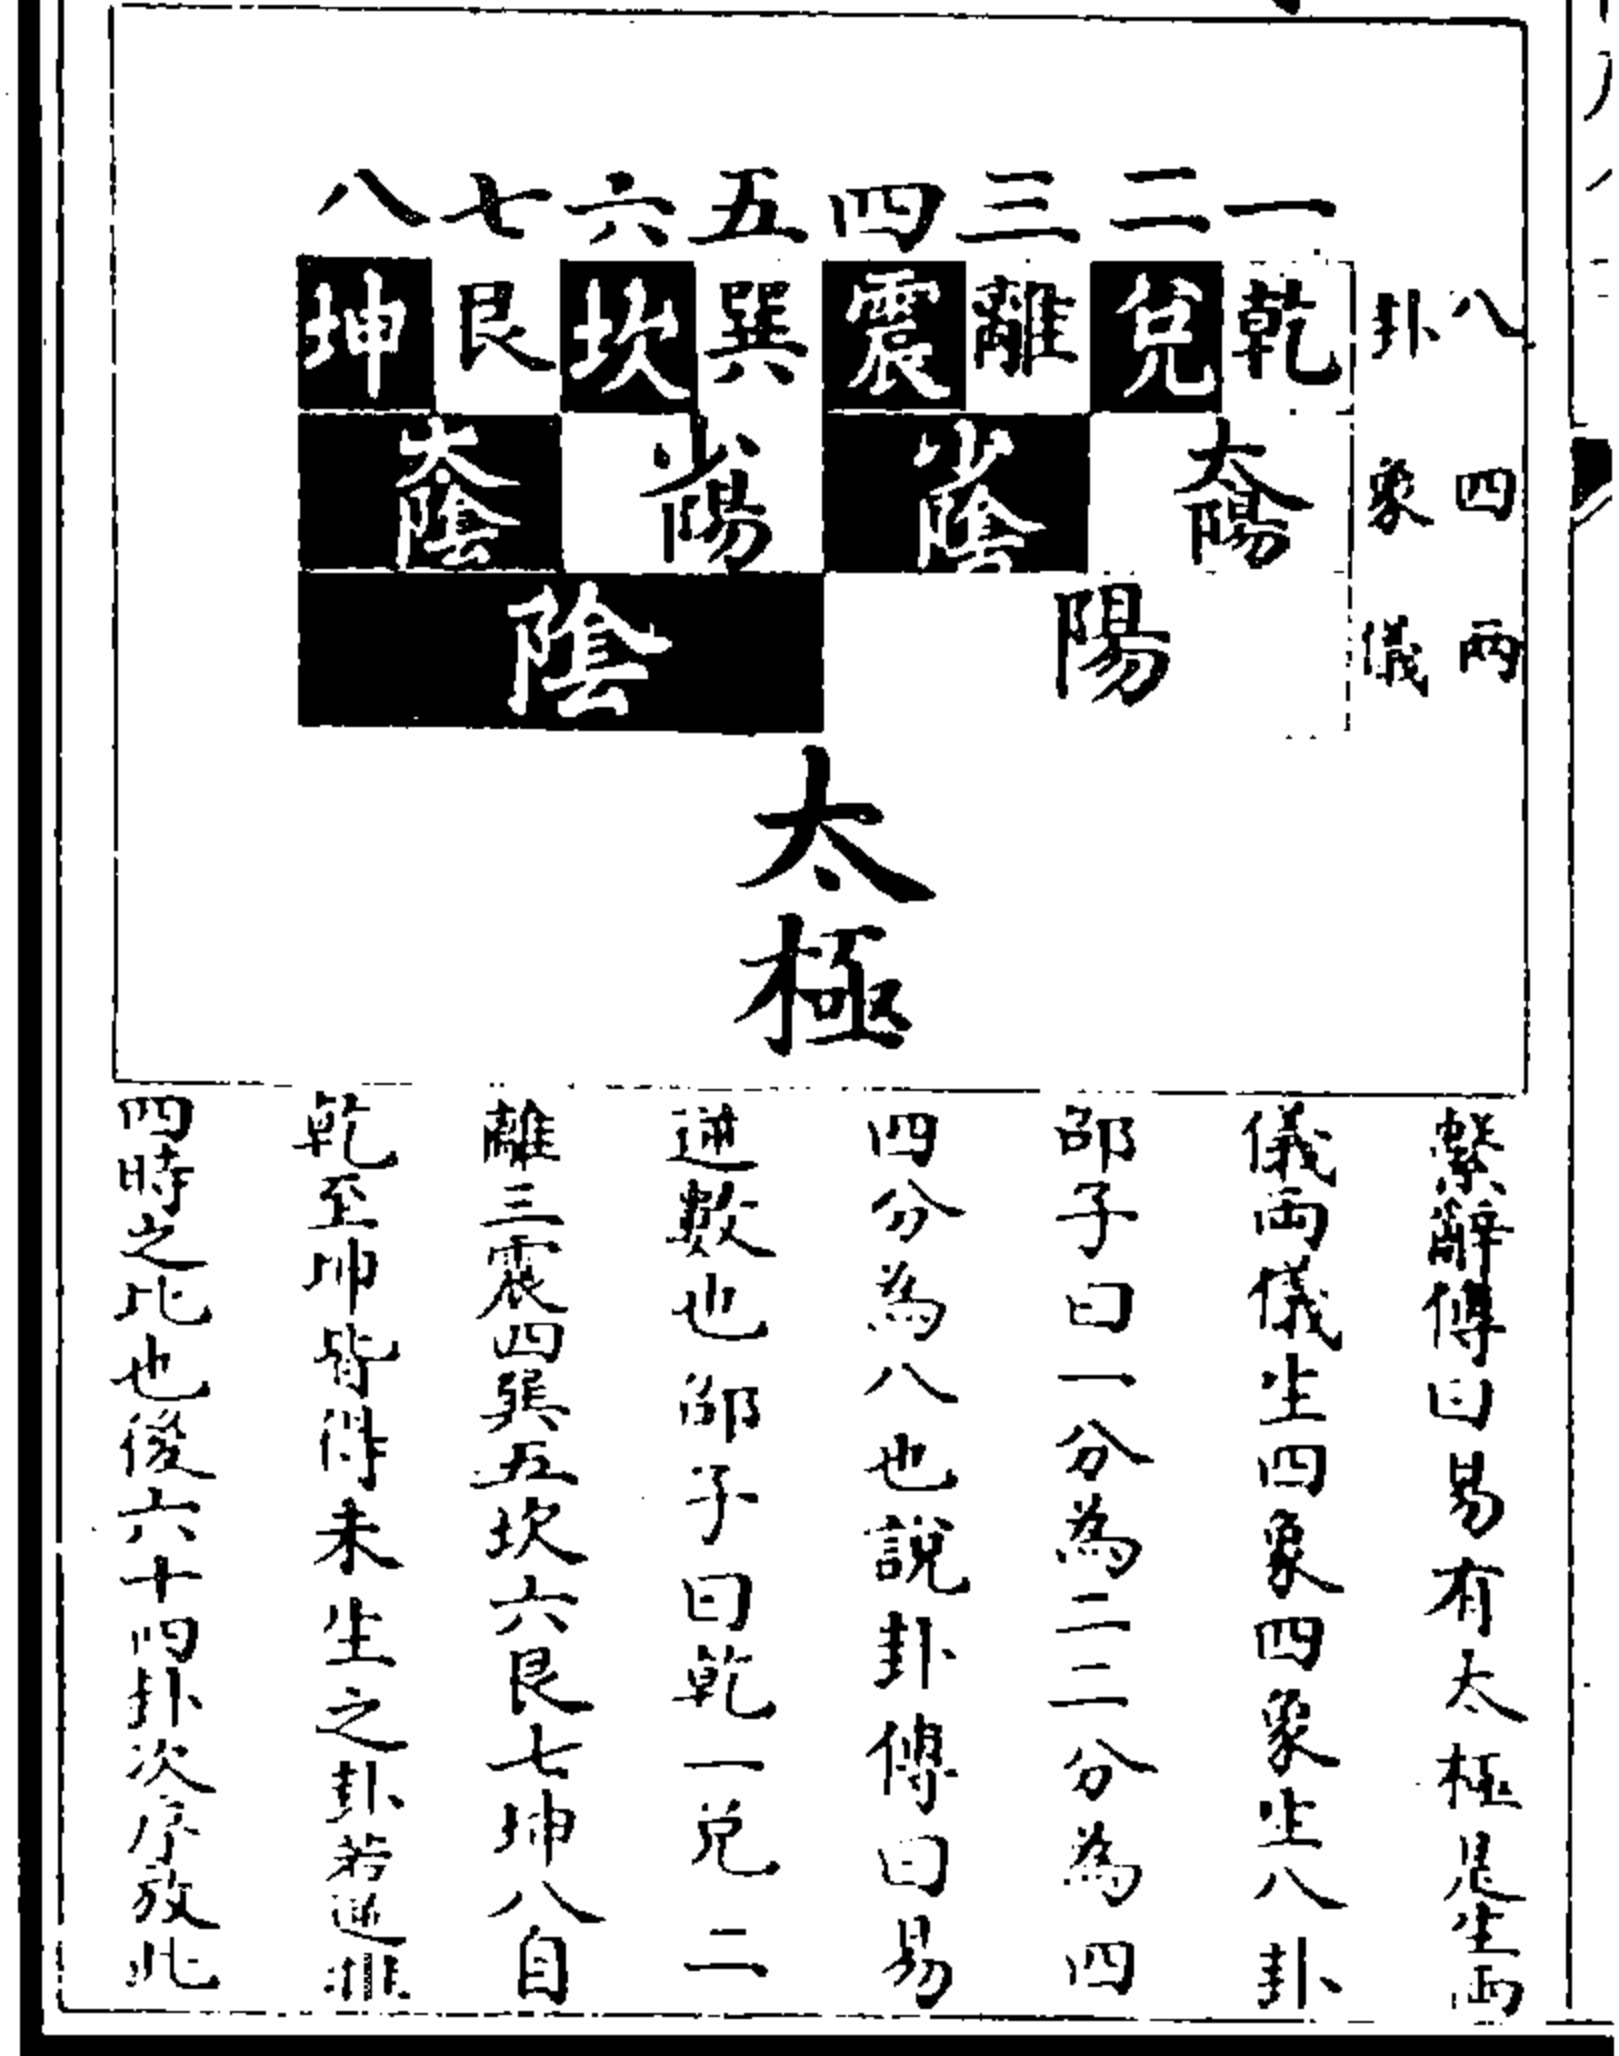 一 二 三 四 五 六 七 八
八卦 乾 兌 離 震 巽 坎 艮 坤
四象 太陽 少陰 少陽 太陰
兩儀 陽 陰
太極
繫辭傳曰易有太極是生兩
儀兩儀生四象四象生八卦
邵子曰一分為二二分為四
四分為八也說卦傳曰易
逆數也邵子曰乾一兌二
離三震四巽五坎六艮七坤八自
乾至坤皆得未生之卦若逆推
四時之比也後六十四卦次序放此